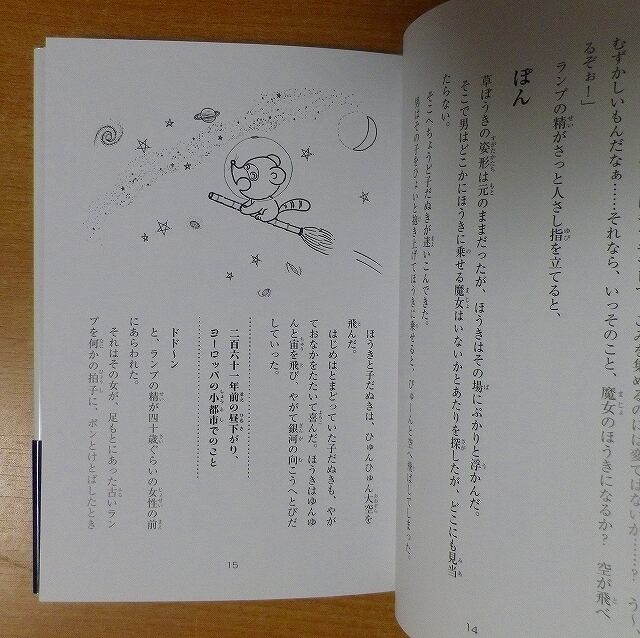 むずかしいもんだなぁ……それなら、いっそのこと、魔女のほうきになるか?　空が飛べ
るぞぉ!」
ランプの精がさっと人さし指を立てると、
ぽん
草ぼうきの姿形は元のままだったが、ほうきはその場にぷかりと浮かんだ。
そこで男はどこかにほうきに乗せる魔女はいないかとあたりを探したが、どこにも見当
たらない。
そこへちょうど子だぬきが迷いこんできた。
男はその子をひょいと抱き上げてほうきに乗せると、ぴゅーんと空へ飛ばしてしまった。
14
ほうきと子だぬきは、ひゅんひゅん大空を
飛んだ。
はじめはとまどっていた子だぬきも、やが
ておなかをたたいて喜んだ。ほうきはゆんゆ
んと宙を飛び、やがて銀河の向こうへとびだ
していった。
二百六十一年前の昼下がり、
ヨーロッパの小都市でのこと
ドド〜ン
と、ランプの精が四十歳ぐらいの女性の前
にあらわれた。
それはその女が、足もとにあった古いラン
プを何かの拍子に、ポンとけとばしたとき
15